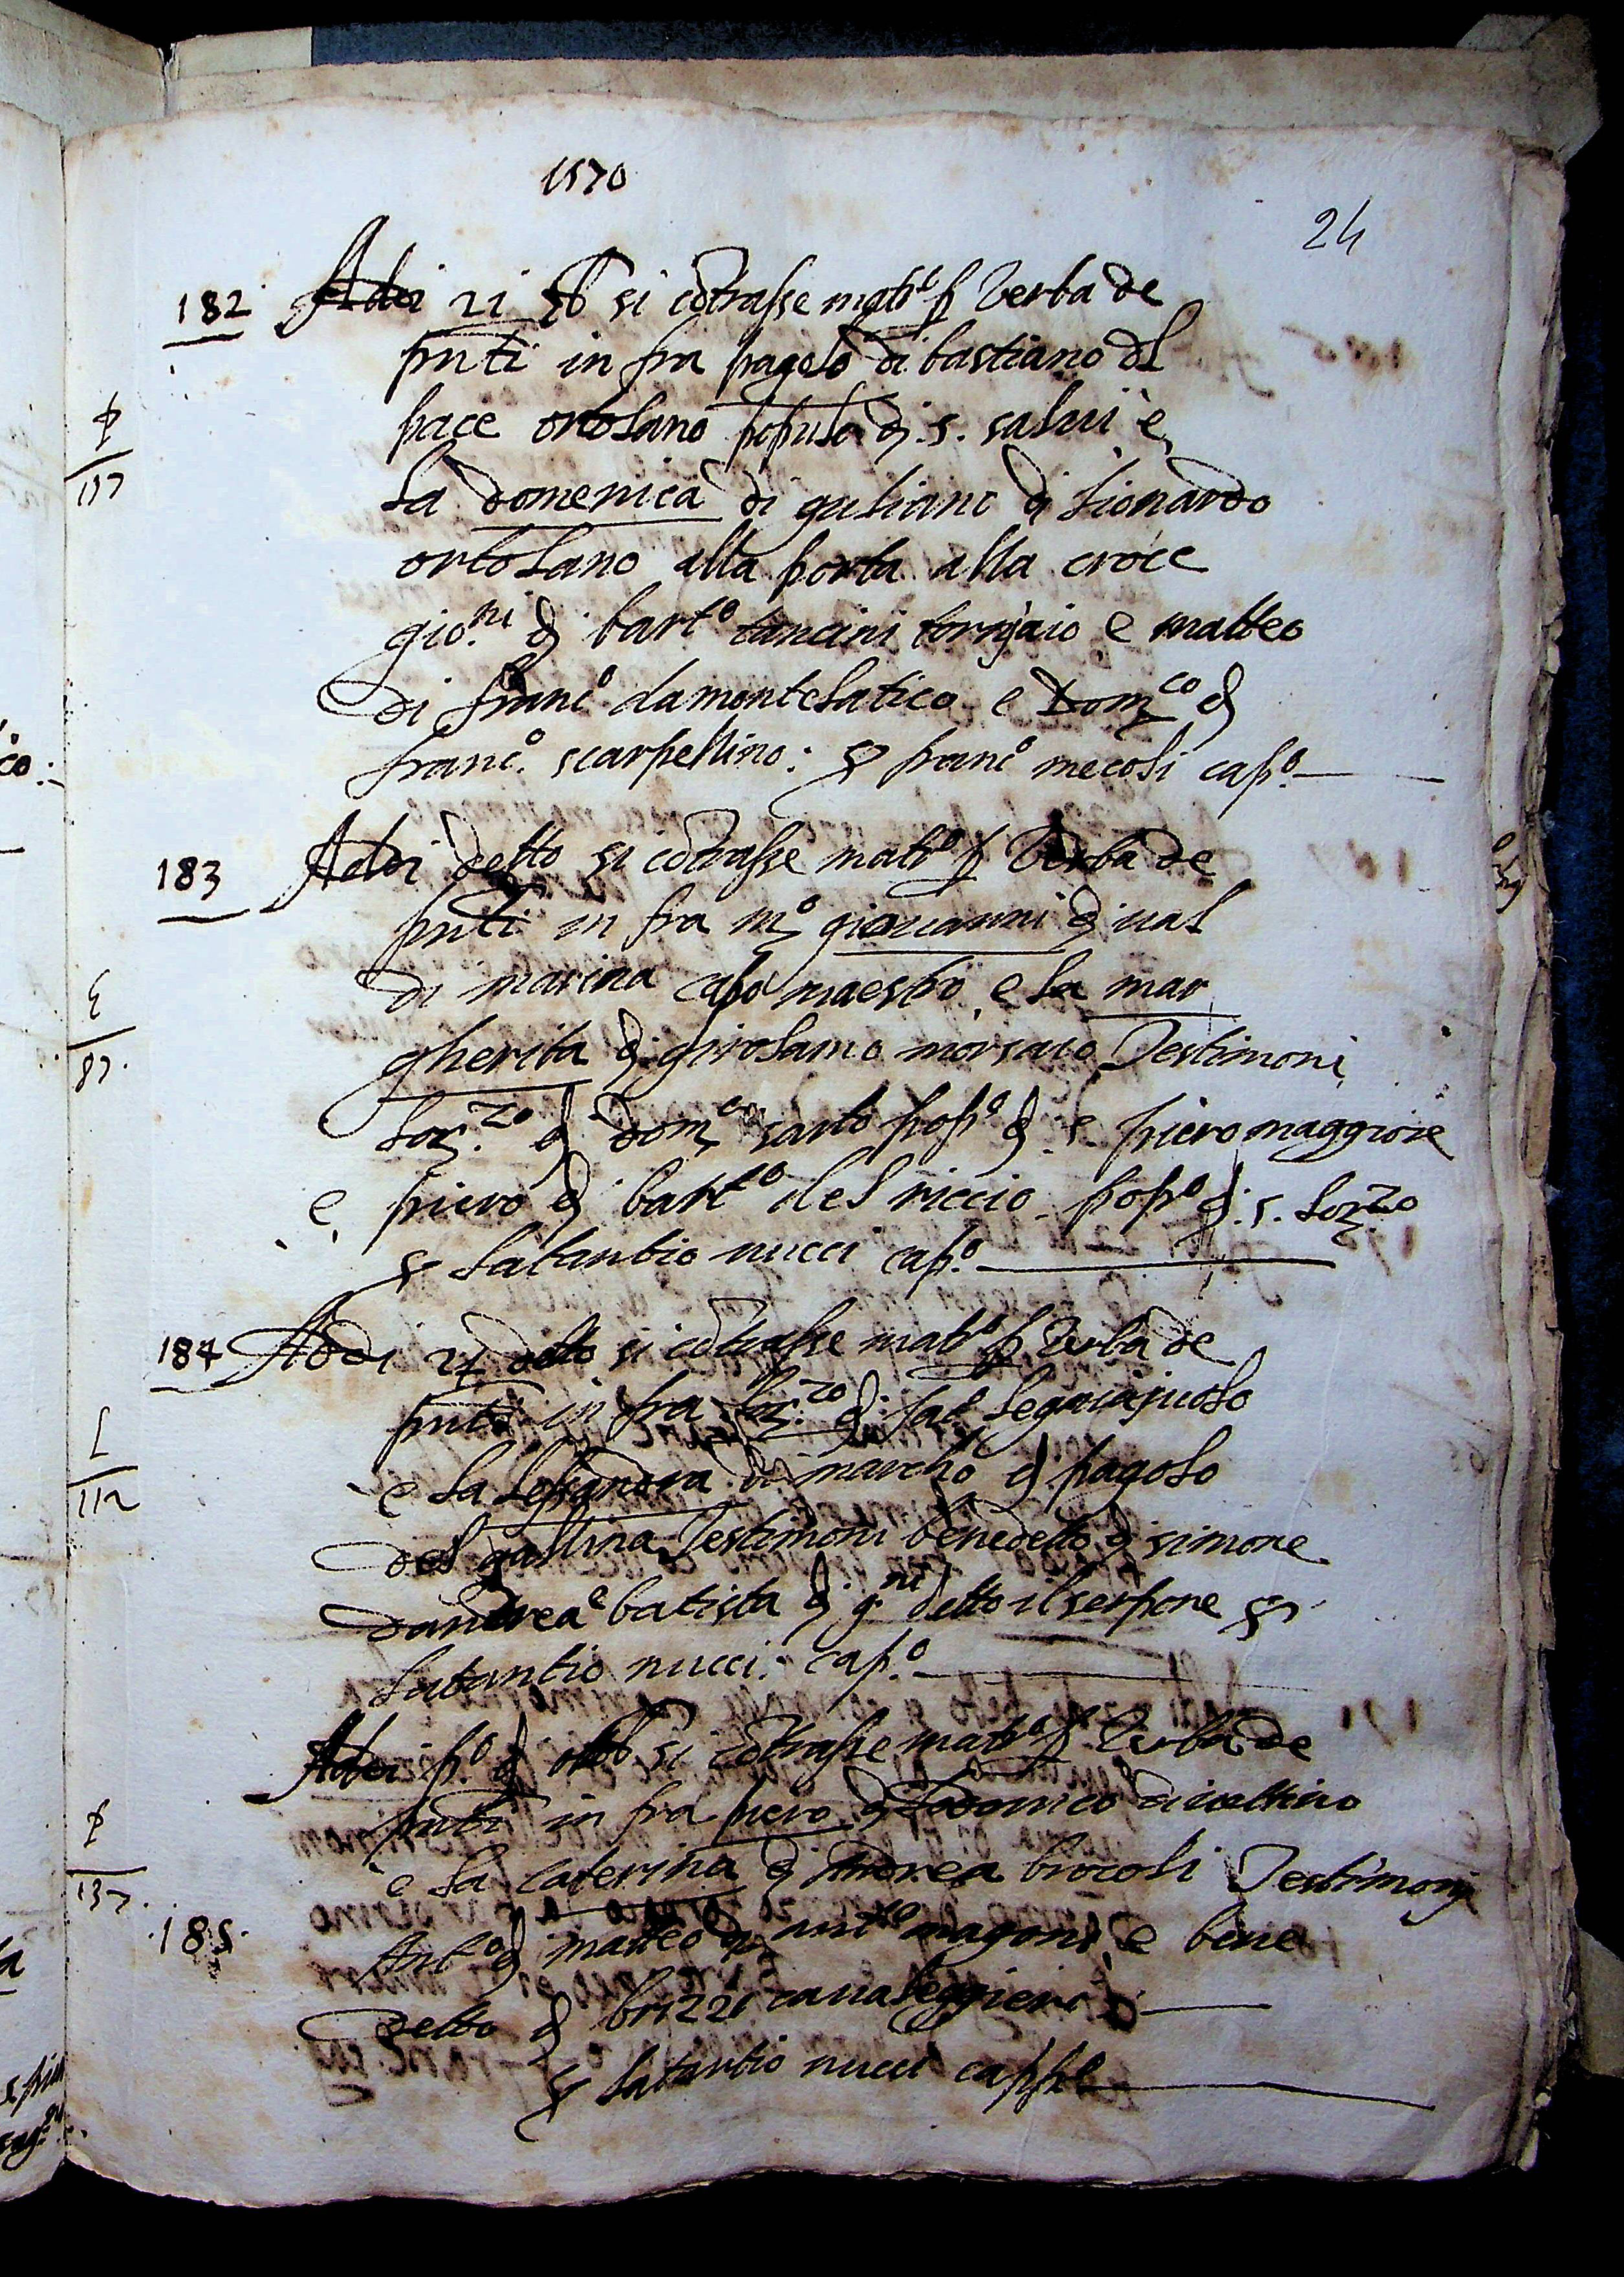 1570
24
182 Adi 21 si cōtrasse mat.o p verba de
pnti in fra pagolo di bastiano del
pace ortolano popolo di .s. salui e
P 117
la domenica di guliano di lionardo
ortolano alla porta alla croce
gio.ni di bart.o tancini fornaio e matteo
di franc.o da montelatico e Dom.co di
franc.o scarpellino: franc.o mecoli cap.o
183 Adi detto si cōtrasse mat.o p verba de
pnti in fra m.o giouanni di ual
di marina capo maestro e la mar
E 87.
gherita di girolamo morsaio Testimoni
Lor.zo di dom.co sarto pop.o di s piero maggiore
e piero di bart.o del riccio pop.o di .s. Lor.zo
latantio nucci cap.o
184 Addi detto si cōtrasse mat.o p verba de
pnti in fra Lor.zo di legnaiuolo
L 112
e la lesandra di marcho di pagolo
del gallina Testimoni benedetto di simone
dandrea e batista di g.ni detto il serpone
latantio nucci. cap.o
Adi p.o di ottob si cōtrasse mat.o p verba de
pnti in fra piero di domenico
P 137.
e la caterina di Andrea brocoli Testimoni
185.
Ant.o di matteo magoni e bene
detto di brizzi caualeggieri
latantio nucci capp.o